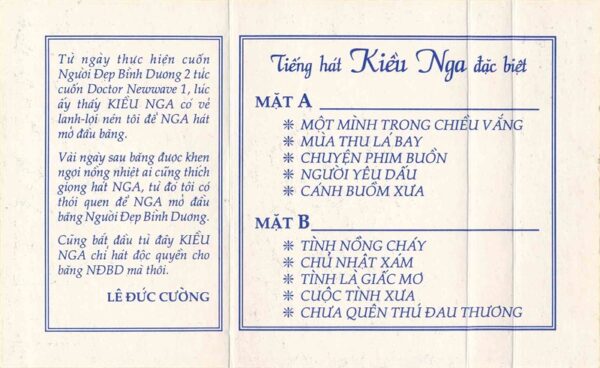 Từ ngày thực hiện cuốn
Người Đẹp Bình Dương 2 tức
cuốn Doctor Newwave 1, lúc
ấy thấy KIỀU NGA có vẻ
lanh-lợi nên tôi để NGA hát
mở đầu băng.
Vài ngày sau băng được khen
ngợi nồng nhiệt ai cũng thích
giọng hát NGA, từ đó tôi có
thói quen để NGA mở đầu
băng Người Đẹp Bình Dương.
Cũng bắt đầu từ đấy KIỀU
NGA chỉ hát độc quyền cho
băng NĐBD mà thôi.
LÊ ĐỨC CƯỜNG
Tiếng hát Kiều Nga đặc biệt
MẶT A
❊ MỘT MÌNH TRONG CHIỀU VẮNG
❊ MÙA THU LÁ BAY
❊ CHUYỆN PHIM BUỒN
❊ NGƯỜI YÊU DẤU
❊ CÁNH BUỒM XƯA
MẶT B
❊ TÌNH NỒNG CHÁY
❊ CHỦ NHẬT XÁM
❊ TÌNH LÀ GIẤC MƠ
❊ CUỘC TÌNH XƯA
❊ CHƯA QUÊN THÚ ĐAU THƯƠNG